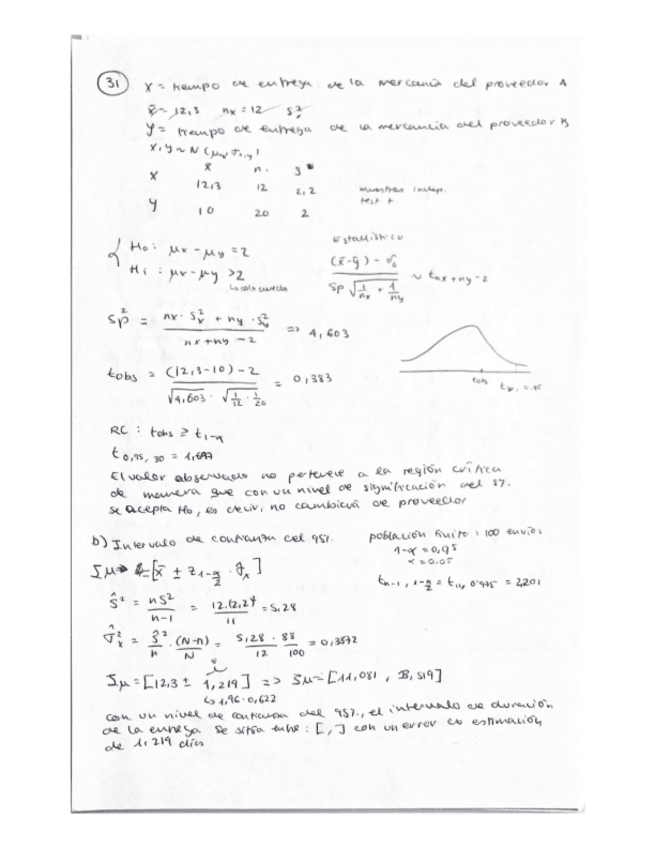 31 X = tiempo de entrega de la mercancía del proveedor A
x̄ = 12,3 nx = 12 s²
Y = tiempo de entrega de la mercancía del proveedor B
X, Y ~ N (μx, σx,y)
x̄ n. s
X 12,3 12 2,2 muestras indep.
Y 10 20 2 test t
H₀: μx - μy = 2 Estadístico
H₁: μx - μy > 2 (x̄-ȳ) - δ₀ / Sp √(1/nx + 1/ny) ~ t nx + ny - 2
Sp² = nx · Sx² + ny · Sy² / nx + ny - 2 => 4,603
tobs = (12,3-10) - 2 / √4,603 · √(1/12 · 1/20) = 0,383
tobs
RC: tobs ≥ t1-α
t0,95, 30 = 1,697
El valor observado no pertenece a la región crítica
de manera que con un nivel de significación del 5%.
se acepta H₀, es decir, no cambiará de proveedor
b) Intervalo de confianza del 95%. población finita: 100 envíos
1-α = 0,95
α = 0.05
Iμ = [x̄ ± z1-α/2 · σ̂x̄]
tn-1, 1-α/2 = t11, 0'975 = 2,201
Ŝ² = nS² / n-1 = 12.(2,2)² / 11 = 5,28
σ̂x̄² = Ŝ²/n · (N-n)/N = 5,28 · 88 / 12 100 = 0,3872
Iμ = [12,3 ± 1,219] => Iμ = [11,081 , 13,519]
↳ 1,96 · 0,622
con un nivel de confianza del 95%, el intervalo de duración
de la entrega se sitúa entre: [,] con un error de estimación
de 1,219 días